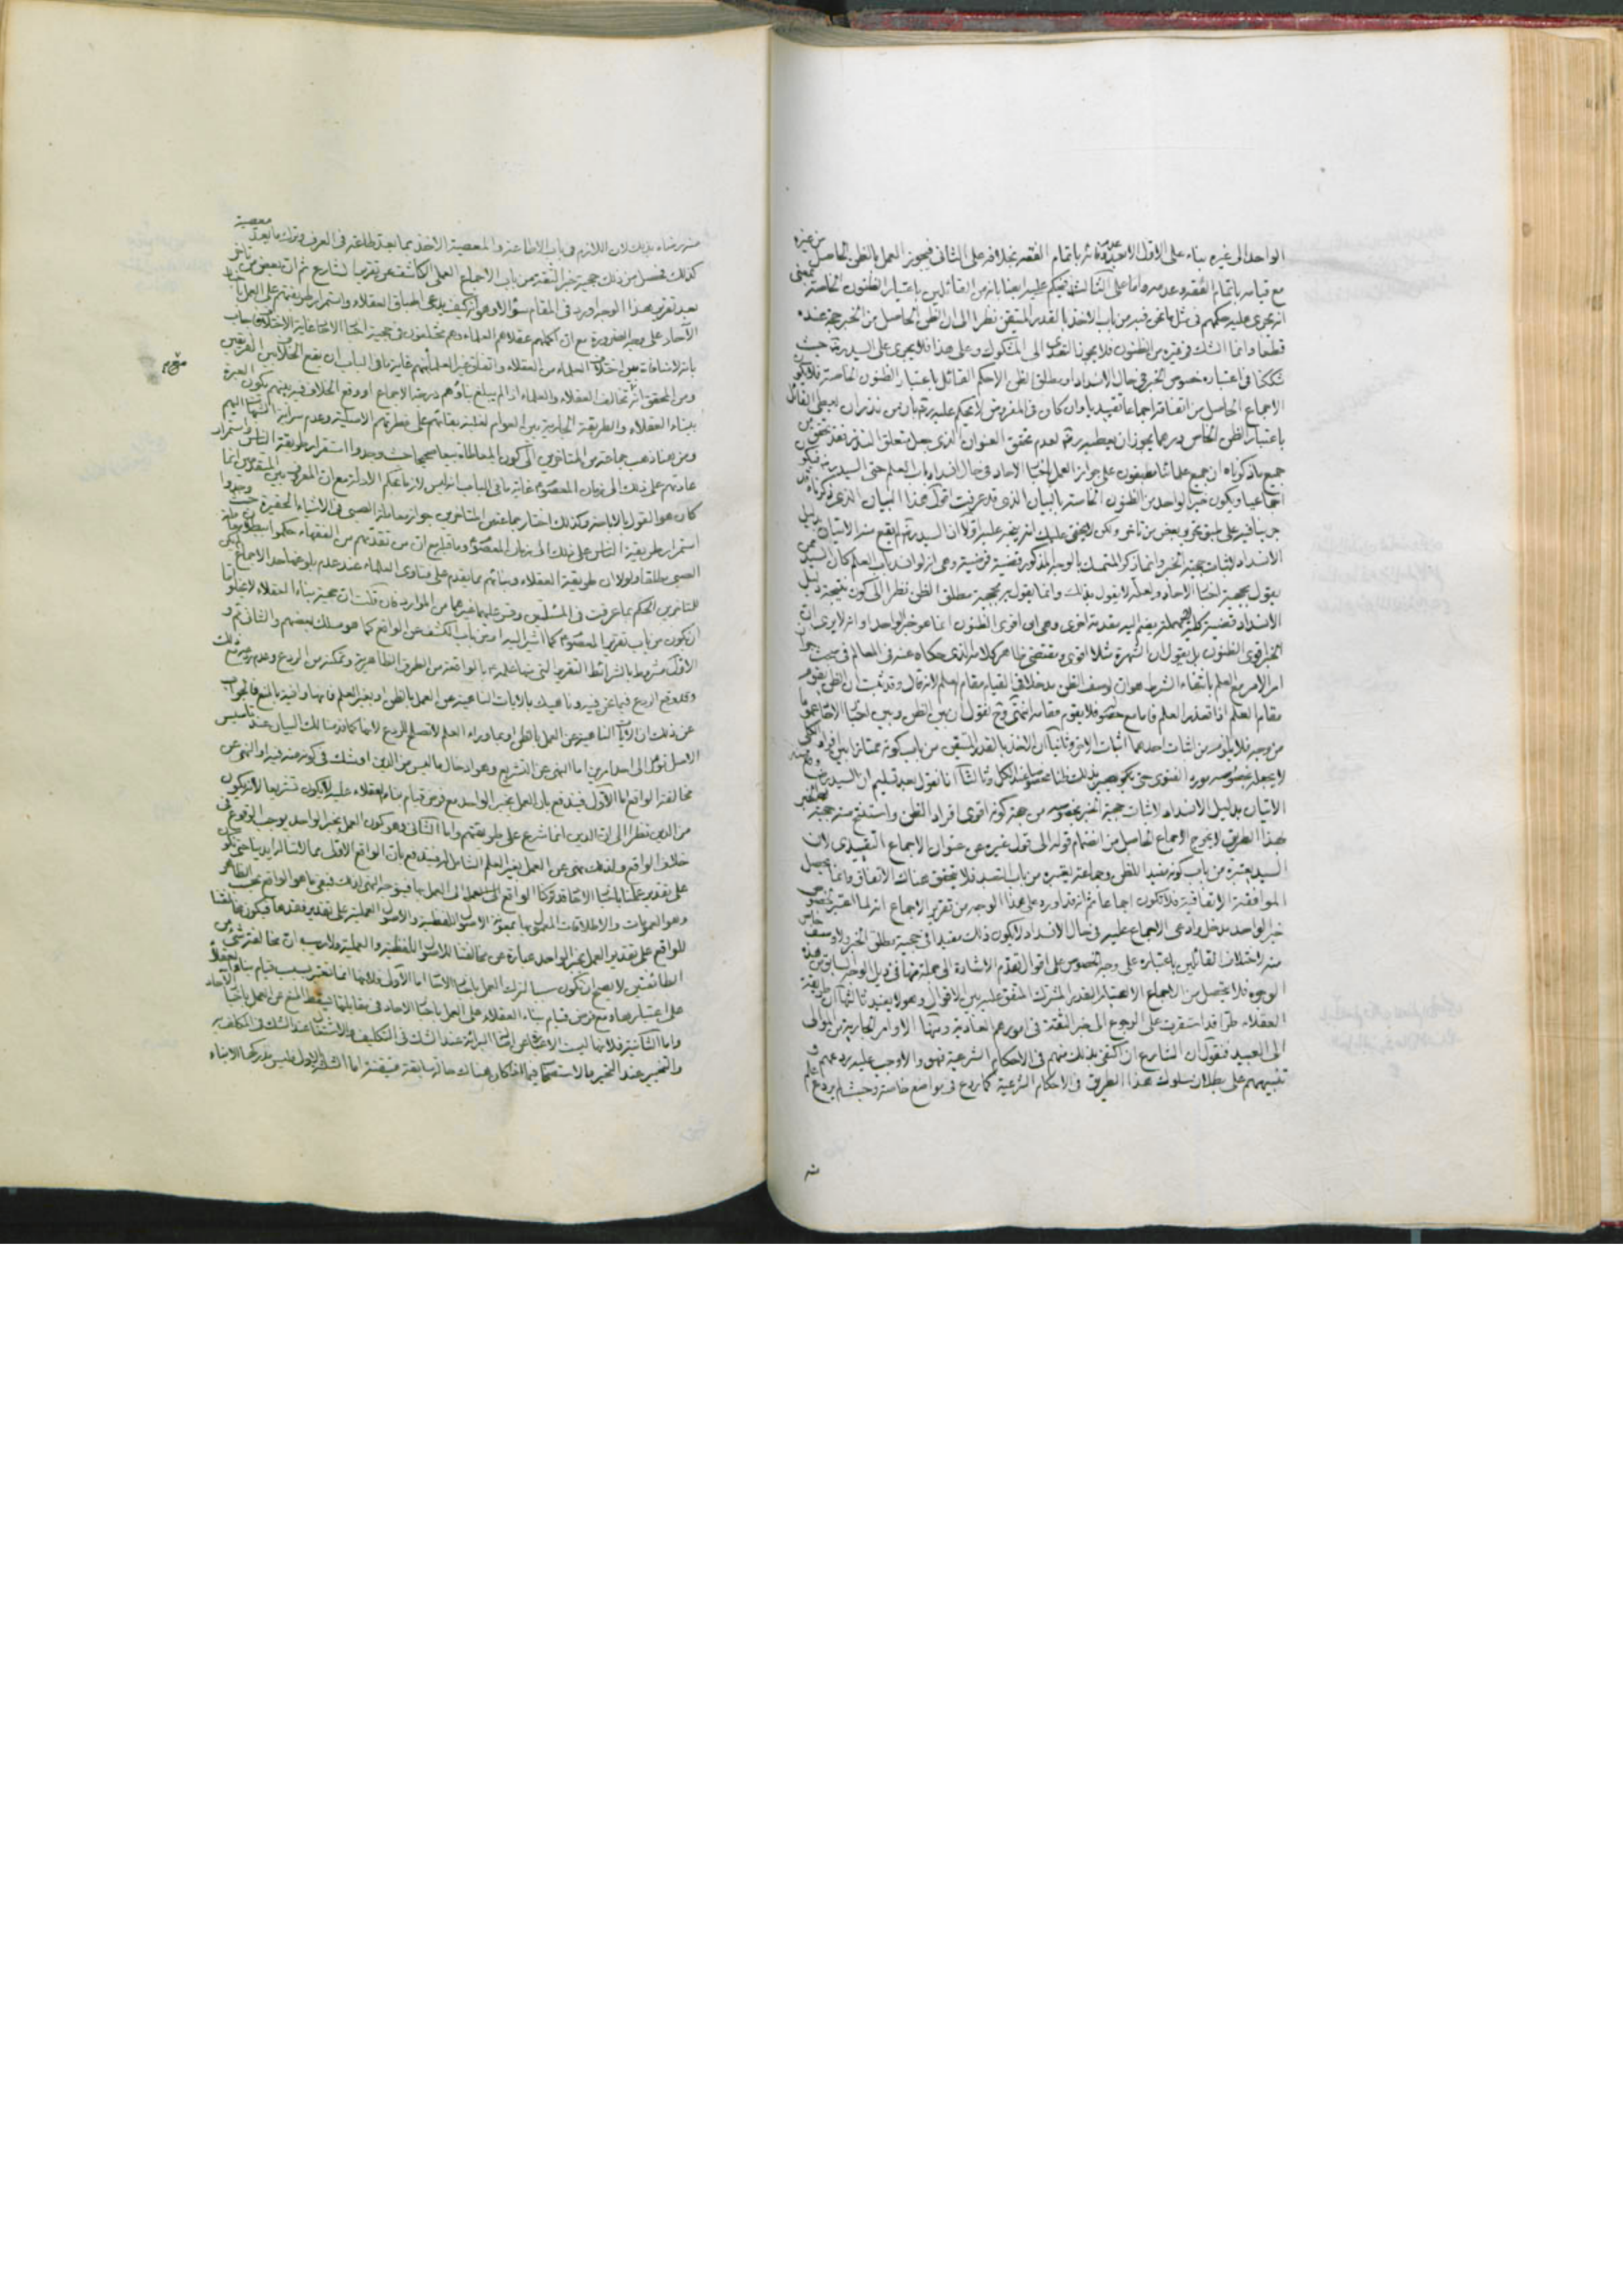 الواحد الى غيره بناء على الاول لاعتبار وفائه باتمام الفقه بخلافه على الثانى فيجوز العمل بالظن الحاصل من غيره
مع قيامه باتمام الفقه وعدمه واما على الثالث فيحكم عليه ايضا بانه من القائلين باعتبار الظنون الخاصة بمعنى
انه يجرى عليه حكمهم فى مثل ما نحن فيه من باب الاخذ بالقدر المتيقن نظرا الى ان الظن الحاصل من الخبر حجة عنده
قطعا وانما الشك فى غيره من الظنون فلا يجوز التعدى الى المشكوك وعلى هذا فلا يجرى على السيد ره حيث
شككنا فى اعتباره خصوص الخبر فى حال الانسداد او مطلق الظن الا حكم القائل باعتبار الظنون الخاصة فلا يكون
الاجماع الحاصل من اتفاقه اجماعا تقييديا وان كان فى المفروض لا يحكم عليه ره بان من نذر ان يعطى القائل
باعتبار الظن الخاص درهما يجوز ان يعطيه ره لعدم تحقق العنوان الذى جعل متعلق النذر فقد تحقق من
جميع ما ذكرناه ان جميع علمائنا مطبقون على جواز العمل باخبار الاحاد فى حال انسداد باب العلم حتى السيد ره فيكون
اجماعيا ويكون خبر الواحد من الظنون الخاصة بالبيان الذى قد عرفت اقول هذا البيان الذى ذكرناه
جرينا فيه على طبق تحرير بعض من تأخر ولكن لا يخفى عليك انه يتجه عليه اولا ان السيد ره لم يقع منه الاتيان بدليل
الانسداد لاثبات حجية الخبر وانما ذكر المتمسك بالوجه المذكور قضية فرضية وهى انه لو انسد باب العلم كان السيد ممن
يقول بحجية اخبار الاحاد ولعله لا يقول بذلك وانما يقول بحجية مطلق الظن نظرا الى كون نتيجة دليل
الانسداد قضية كلية
الخبر اقوى الظنون بل يقول ان الشهرة مثلا اقوى ومقتضى ظاهر كلامه الذى حكاه عنه فى المعالم فى مبحث جواز
امر الامر مع العلم بانتفاء الشرط هو ان لوصف الظن مدخلا فى القيام مقام العلم لانه قال وقد ثبت ان الظن يقوم
مقام العلم اذا تعذر العلم فاما مع حصوله فلا يقوم مقامه انتهى وح نقول ان بين الظن وبين اخبار الاحاد عموما
من وجه فلا يلزم من اثبات احدهما اثبات الاخر وثانيا ان الاخذ بالقدر المتيقن من باب كونه ممتازا بين افراد الكلى
لا يجعله بخصوصه مورد الفتوى حتى يصير بذلك ظنا مخصوصا عند الكل وثالثا انا نقول بعد تسليم ان السيد وقع منه
الاتيان بدليل الانسداد لاثبات حجية الخبر بخصوصه من جهة كونه اقوى افراد الظن واستنتج منه حجية الخبر
بهذا الطريق لا يخرج الاجماع الحاصل من انضمام قوله الى قول غيره عن عنوان الاجماع التقييدى لان
السيد يعتبره من باب كونه مفيد الظن وجماعة يعتبره من باب التعبد فلا يتحقق هناك الاتفاق وانما يحصل
الموافقة الاتفاقية فلا تكون اجماعا ثم انه قد اورد على هذا الوجه من تقرير الاجماع انه لما اعتبر خصوص
خبر الواحد مدخل وادعى الاجماع عليه فى حال الانسداد لا يكون ذلك مفيدا فى حجية مطلق الخبر ولا صنف خاص
منه لاختلاف القائلين باعتباره على وجه الخصوص على اقوال تقدم الاشارة الى جملة منها فى ذيل الوجه السابق من هذه
الوجوه فلا يحصل من الاجماع الا اعتبار القدر المشترك المتفق عليه بين الاقوال وهو لا يفيد ثالثها ان طريقة
العقلاء طرا قد استقرت على الرجوع الى خبر الثقة فى امورهم العادية ومنها الاوامر الجارية من الموالى
الى العبيد فنقول ان الشارع ان اكتفى بذلك منهم فى الاحكام الشرعية فهو والا وجب عليه ردعهم و
تنبيههم على بطلان سلوك هذا الطريق فى الاحكام الشرعية كما ردع فى مواضع خاصة وحيث لم يردع علم
منه
منه رضاه بذلك لان اللازم فى باب الاطاعة والمعصية الاخذ بما يعد طاعة فى العرف وترك ما يعد معصية
كذلك فتحصل من ذلك حجية خبر الثقة من باب الاجماع العملى الكاشف عن تقرير الشارع ثم ان بعض من تأخر
بعد تقرير هذا الوجه اورد فى المقام سؤالا وهو انه كيف يدعى اطباق العقلاء واستمرار طريقتهم على العمل باخبار
الآحاد على وجه الضرورة مع ان اكملهم عقلا هم العلماء وهم مختلفون فى حجية اخبار الاحاد غاية الاختلاف فاجاب
بانه لا منافات بين اختلاف العلماء من العقلاء واتفاق غير العلماء منهم غاية ما فى الباب ان يقع الخلاف بين الفريقين
ومن المحقق انه تخالف العقلاء والعلماء اذا لم يبلغ بناؤهم درجة الاجماع او وقع الخلاف فيه بينهم يكون العبرة
ببناء العقلاء والطريقة الجارية بين العوام لغلبة بقائهم على فطرتهم الاصلية وعدم سراية الشبهات اليهم
ومن هنا ذهب جماعة من المتأخرين الى كون المعاطاة بيعا صحيحا حيث وجدوا استقرار طريقة الناس واستمرار
عادتهم على ذلك الى زمان المعصوم غاية ما فى الباب انه ليس لازما بحكم الادلة مع ان المعروف بين المتقدمين انما
كان هو القول بالاباحة وكذلك اختار جماعة من المتأخرين جواز معاملة الصبى فى الاشياء الحقيرة حيث وجدوا
استمرار طريقة الناس على ذلك الى زمان المعصوم وما قبله مع ان من تقدمهم من الفقهاء حكموا ببطلان معاملة
الصبى مطلقا ولولا ان طريقة العقلاء وبنائهم مما يقدم على فتاوى العلماء عند عدم بلوغها حد الاجماع لم يكن
للمتأخرين الحكم بما عرفت فى المسئلتين وقس عليهما غيرهما من الموارد فان قلت ان حجية بناء العقلاء لا يخلو اما
ان يكون من باب تقرير المعصوم كما اشير اليه او من باب الكشف عن الواقع كما هو مسلك بعضهم والثانى مم و
الاول مشروط بالشرائط التقرير التى منها علمه بالواقعة من الطرق الظاهرية وتمكنه من الردع وعدم ردعه مع ذلك
وقد وقع الردع فيما نحن فيه وناهيك بالايات الناهية عن العمل بالظن او بغير العلم فانها وافية بالمنع فالجواب
عن ذلك ان الايات الناهية عن العمل بالظن او بما وراء العلم لا تصلح للردع لانها كما قدمنا لك البيان عند تاسيس
الاصل تؤل الى احد امرين اما النهى عن التشريع وهو ادخال ما ليس من الدين او شك فى كونه منه فيه او النهى عن
مخالفة الواقع اما الاول فيندفع بان العمل بخبر الواحد مع فرض قيام بناء العقلاء عليه لا يكون تشريعا لانه يكون
من الدين نظرا الى ان الدين انما شرع على طريقتهم واما الثانى وهو كون العمل بخبر الواحد يوجب الوقوع فى
خلاف الواقع ولذلك نهى عن العمل بغير العلم الشامل له فيندفع بان الواقع الاولى مما لا سبيل اليه
على تقدير عملنا باخبار الاحاد قد تركنا الواقع الى العمل بها فيتوجه النهى لذلك فبقى ما هو الواقع بحسب الظاهر
وهو العمومات والاطلاقات المعمول بها بمعونة الاصول اللفظية والاصول العملية على تقدير فقدها فيكون مخالفتنا
للواقع على تقدير العمل بخبر الواحد عبارة عن مخالفتنا للاصول اللفظية والعملية ولا ريب ان مخالفة شىء من
الطائفتين لا يصح ان يكون سببا لترك العمل باخبار الاحاد اما الاول فلانها انما تعتبر بسبب قيام بناء العقلاء
على اعتبارها ومع فرض قيام بناء العقلاء على العمل باخبار الاحاد فى مقابلها يسقط المنع عن العمل باخبار الآحاد
واما الثانية فلانها ليست الا عبارة عن اصالة البرائة عند الشك فى التكليف والاشتغال عند الشك فى المكلف به
والتخيير عند التخير والاستصحاب فيما اذا كان هناك حالة سابقة متيقنة اما الثلثة الاول فليس مدركها الا بناء